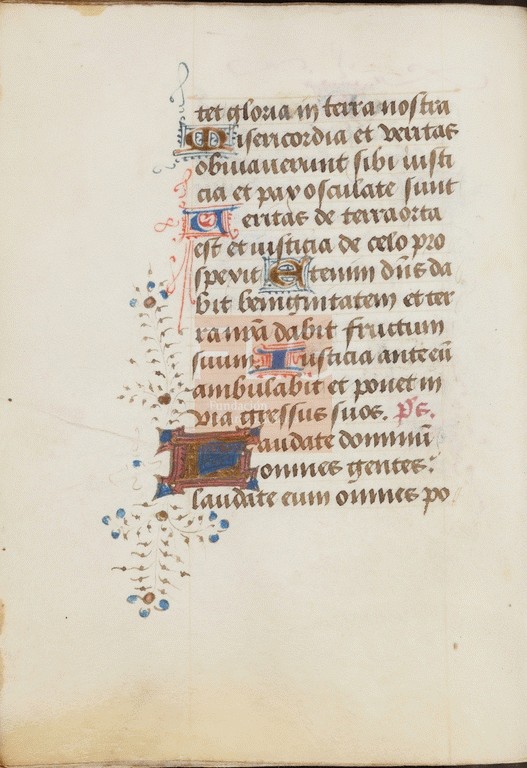 tet gloria in terra nostra
Misericordia et veritas
obviaverunt sibi iusti
cia et pax osculate sunt
Veritas de terra orta
est et iusticia de celo pro
spexit Etenim dn̄s da
bit benignitatem et ter
ra nr̄a dabit fructum
suum Iusticia ante eū
ambulabit et ponet in
via gressus suos. p̄s.
Laudate dominū
omnes gentes:
laudate eum omnes po
Fundación